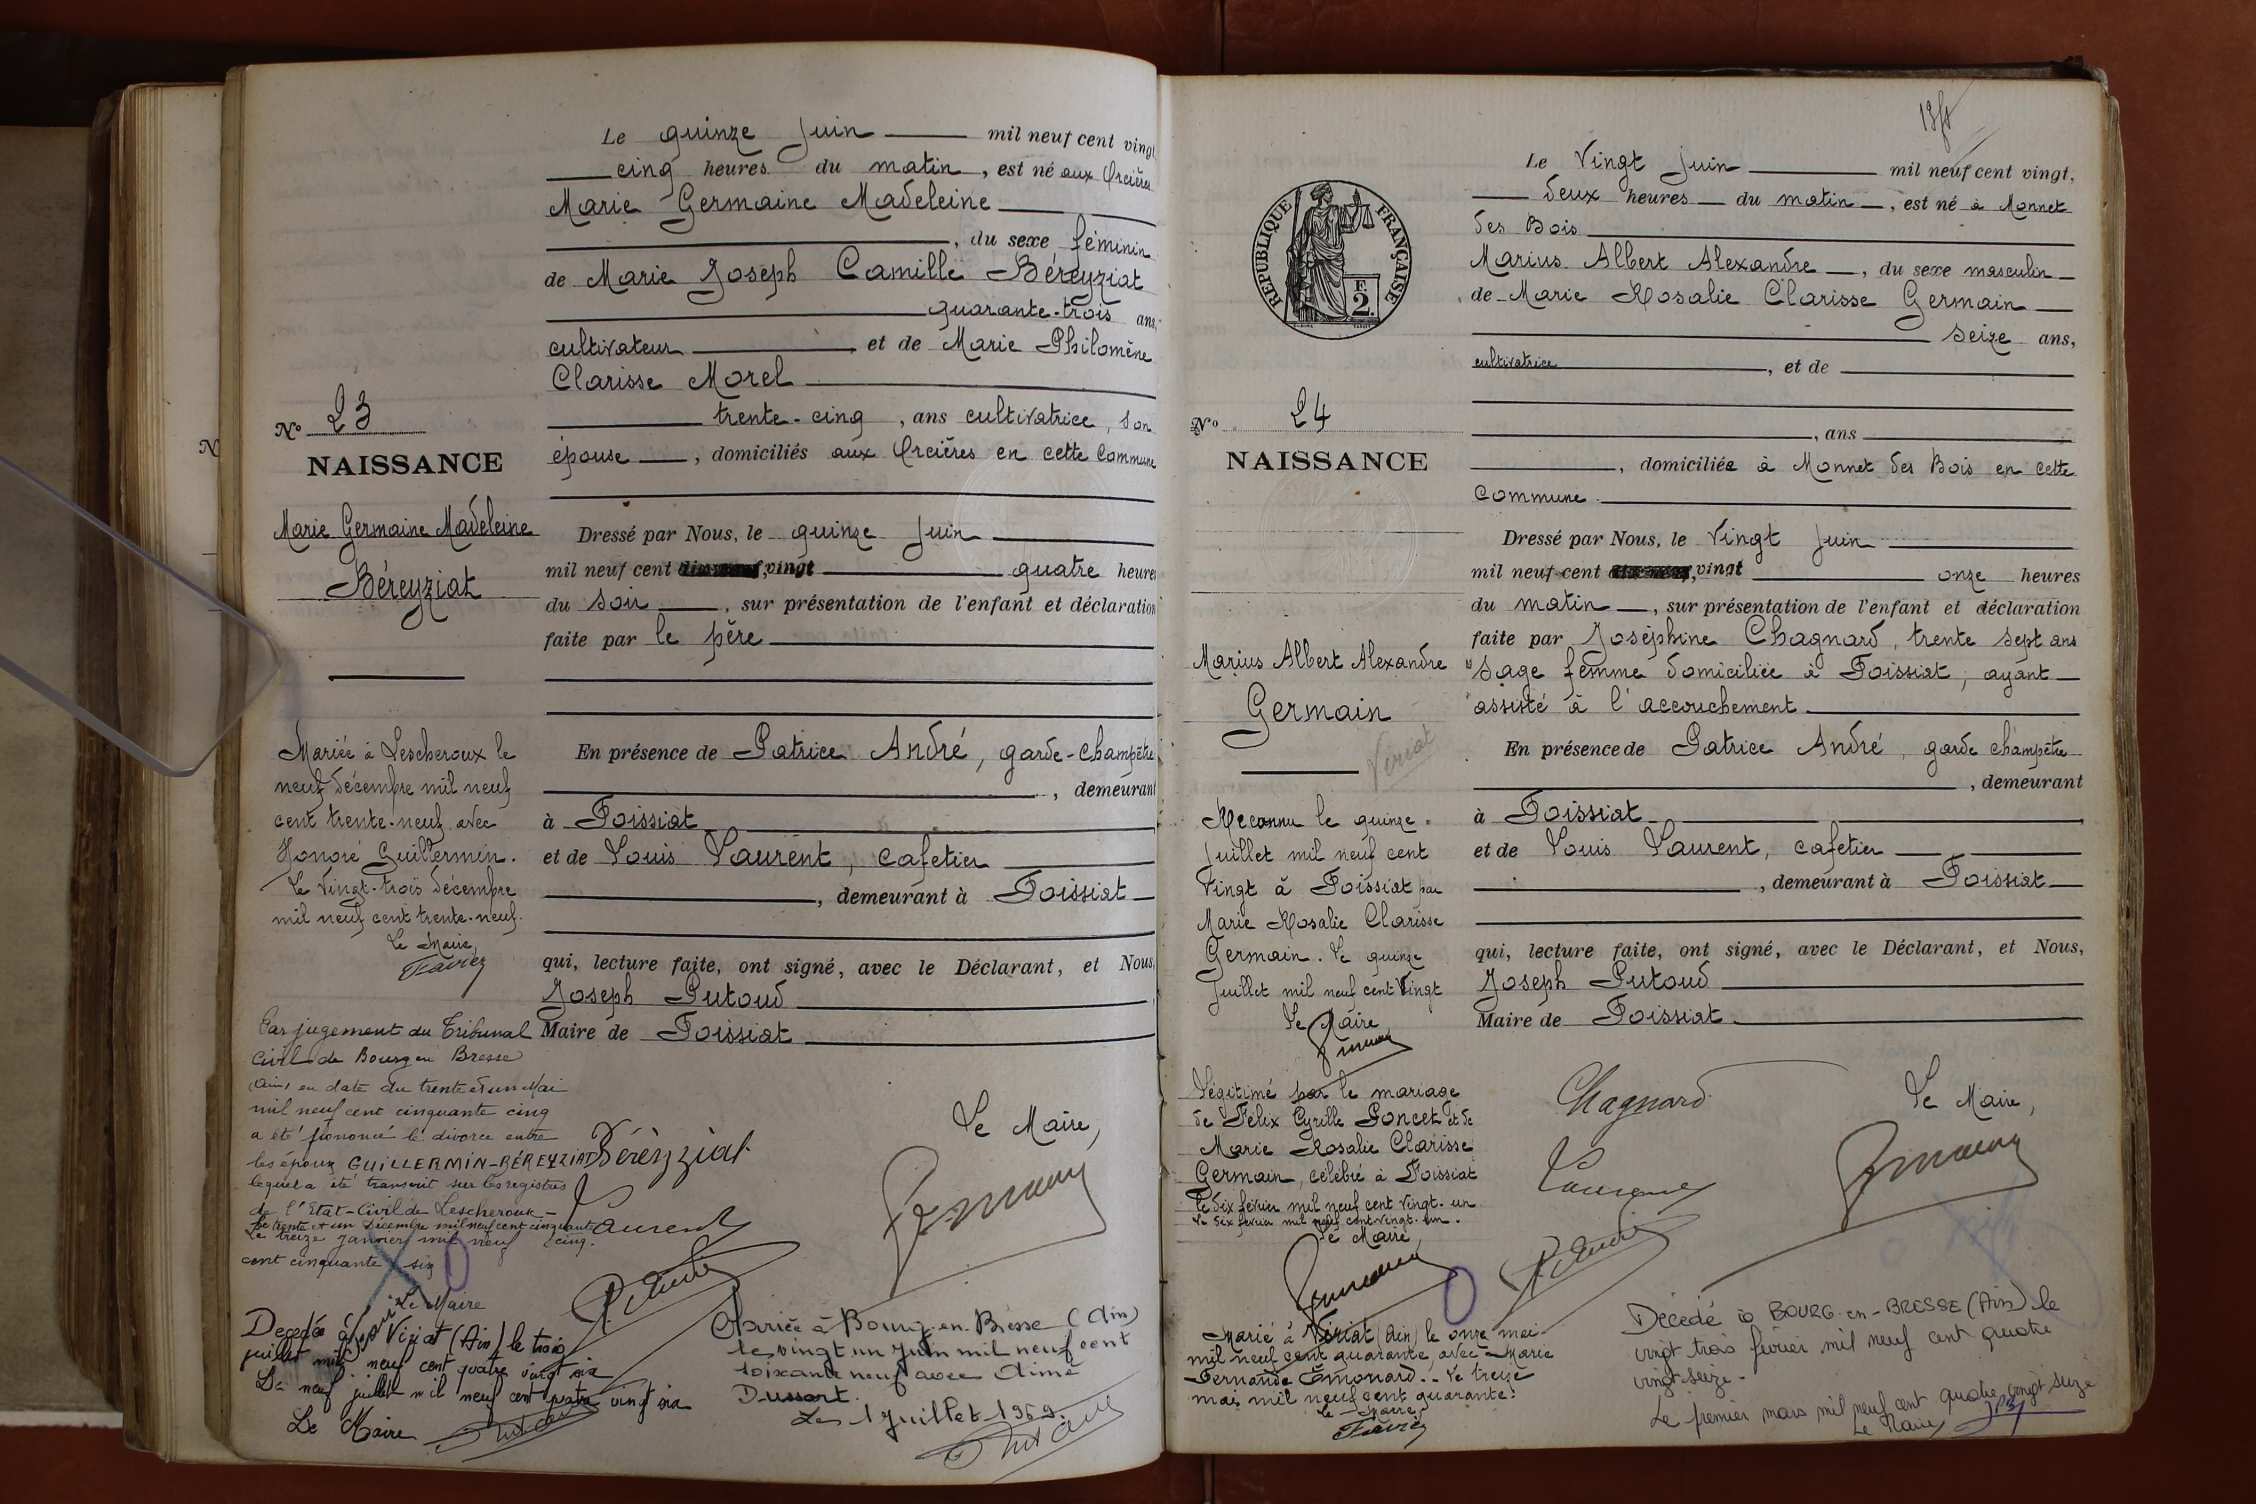 Le quinze Juin mil neuf cent vingt
cinq heures du matin, est né aux Orcières
Marie Germaine Madeleine
, du sexe féminin
de Marie Joseph Camille Béreyziat
quarante-trois ans,
cultivateur, et de Marie Philomène
Clarisse Morel
trente-cinq, ans cultivatrice, son
épouse, domiciliés aux Orcières en cette Commune
N° 23
NAISSANCE
Marie Germaine Madeleine
Béreyziat
Dressé par Nous, le quinze Juin
mil neuf cent vingt quatre heures
du soir, sur présentation de l'enfant et déclaration
faite par le père
En présence de Patrice André, garde-champêtre
, demeurant
à Foissiat
et de Louis Laurent, cafetier
, demeurant à Foissiat
qui, lecture faite, ont signé, avec le Déclarant, et Nous,
Joseph Putoud
Maire de Foissiat
Mariée à Lescheroux le
neuf décembre mil neuf
cent trente-neuf avec
Honoré Guillermin.
Le vingt-trois décembre
mil neuf cent trente-neuf.
Le Maire,
Favier
Par jugement du Tribunal
Civil de Bourg en Bresse
(Ain) en date du trente et un Mai
mil neuf cent cinquante cinq
a été prononcé le divorce entre
les époux GUILLERMIN-BÉREYZIAT
lequel a été transcrit sur les registres
de l'Etat-Civil de Lescheroux
le trente et un Décembre mil neuf cent cinquante
cinq.
Le treize janvier mil neuf
cent cinquante six
Le Maire
Béréyziat
Laurent
P. André
Le Maire,
Décédée à Viriat (Ain) le trois
juillet mil neuf cent quatre vingt six
Le neuf juillet mil neuf cent quatre vingt six
Le Maire
Mariée à Bourg-en-Bresse (Ain)
le vingt un Juin mil neuf cent
soixante neuf avec Aimé
Dussort.
Le 1 Juillet 1969.
N
Le Vingt Juin mil neuf cent vingt,
deux heures du matin, est né à Monnet
des Bois
Marius Albert Alexandre, du sexe masculin
de Marie Rosalie Clarisse Germain
seize ans,
cultivatrice, et de
, ans
, domiciliée à Monnet des Bois en cette
commune
RÉPUBLIQUE FRANÇAISE
F.
2.
N° 24
NAISSANCE
Marius Albert Alexandre
Germain
Viriat
Dressé par Nous, le Vingt Juin
mil neuf cent vingt onze heures
du matin, sur présentation de l'enfant et déclaration
faite par Joséphine Chagnard, trente sept ans
sage femme domiciliée à Foissiat, ayant
assisté à l'accouchement
En présence de Patrice André, garde champêtre
, demeurant
à Foissiat
et de Louis Laurent, cafetier
, demeurant à Foissiat
qui, lecture faite, ont signé, avec le Déclarant, et Nous,
Joseph Putoud
Maire de Foissiat
Reconnu le quinze
Juillet mil neuf cent
Vingt à Foissiat par
Marie Rosalie Clarisse
Germain. Le quinze
Juillet mil neuf cent Vingt
Le Maire,
Légitimé par le mariage
de Félix Cyrille Poncet et de
Marie Rosalie Clarisse
Germain, célébré à Foissiat
le dix février mil neuf cent vingt-un
Le dix février mil neuf cent vingt-un.
Le Maire,
Chagnard
Laurent
P. André
Le Maire,
Marié à Viriat (Ain) le onze mai
mil neuf cent quarante, avec Marie
Fernande Émonard. Le treize
mai mil neuf cent quarante.
Le Maire,
Favier
Décédé à BOURG-en-BRESSE (Ain) le
vingt trois février mil neuf cent quatre
vingt seize.
Le premier mars mil neuf cent quatre vingt seize
Le Maire